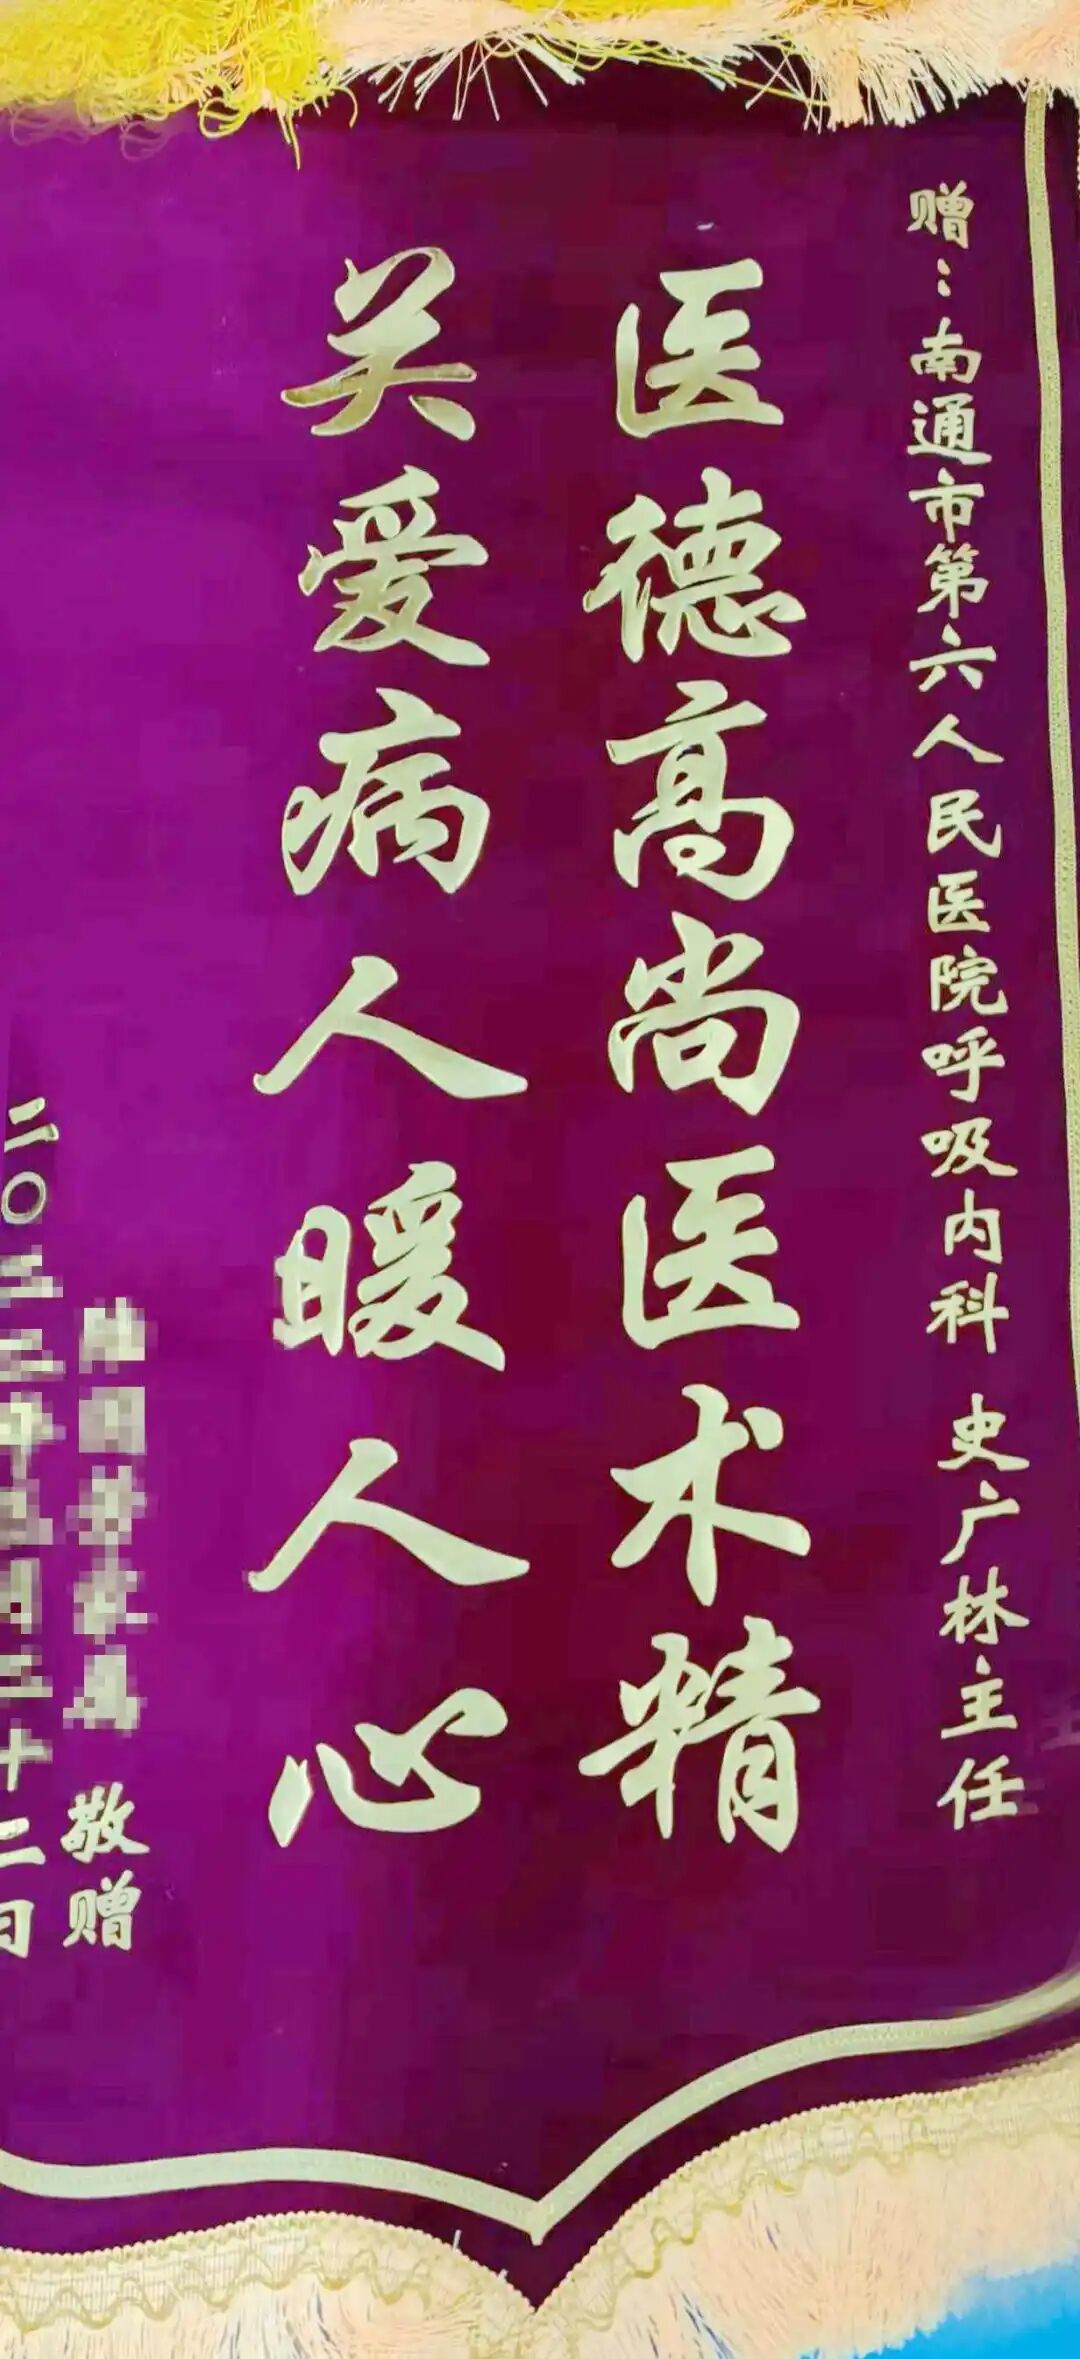 赠：南通市第六人民医院呼吸内科 史广林主任
医德高尚医术精
关爱病人暖人心
家属 敬赠
二〇二三年三月二十二日